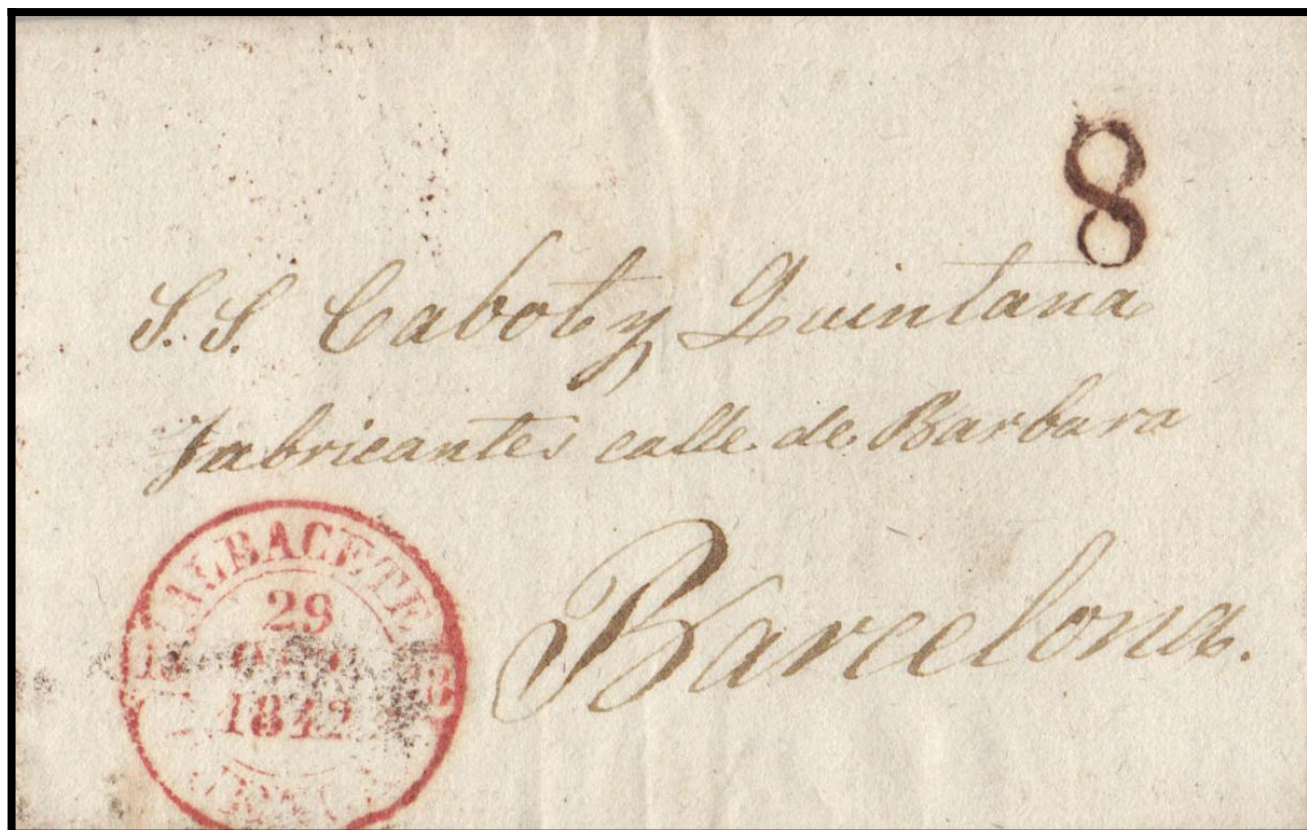 8
S. S. Cabot y Quintana
fabricantes calle de Barbara
Barcelona.
ALBACETE
29
1842